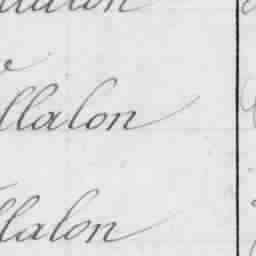 llalon
llalon
llalon